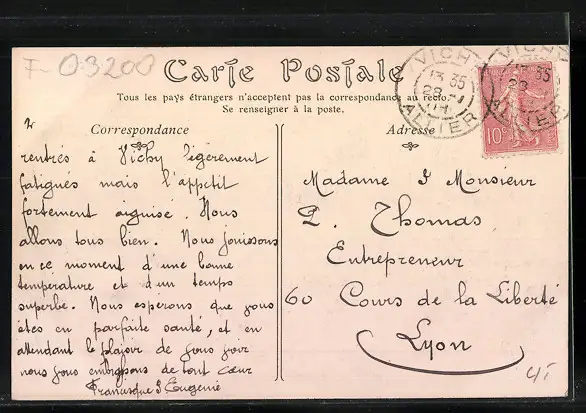 F-03200
Carte Postale
Tous les pays étrangers n'acceptent pas la correspondance au recto.
Se renseigner à la poste.
VICHY
13 35
28
ALLIER
VICHY
35
28
ALLIER
10c
2
Correspondance
rentrés à Vichy légèrement
fatigués mais l'appétit
fortement aiguisé. Nous
allons tous bien. Nous jouissons
en ce moment d'une bonne
température et d'un temps
superbe. Nous esperons que vous
êtes en parfaite santé, et en
attendant le plaisir de vous voir
nous vous embrassons de tout cœur
Francisque & Eugénie
Adresse
Madame & Monsieur
P. Thomas
Entrepreneur
60 Cours de la Liberté
Lyon